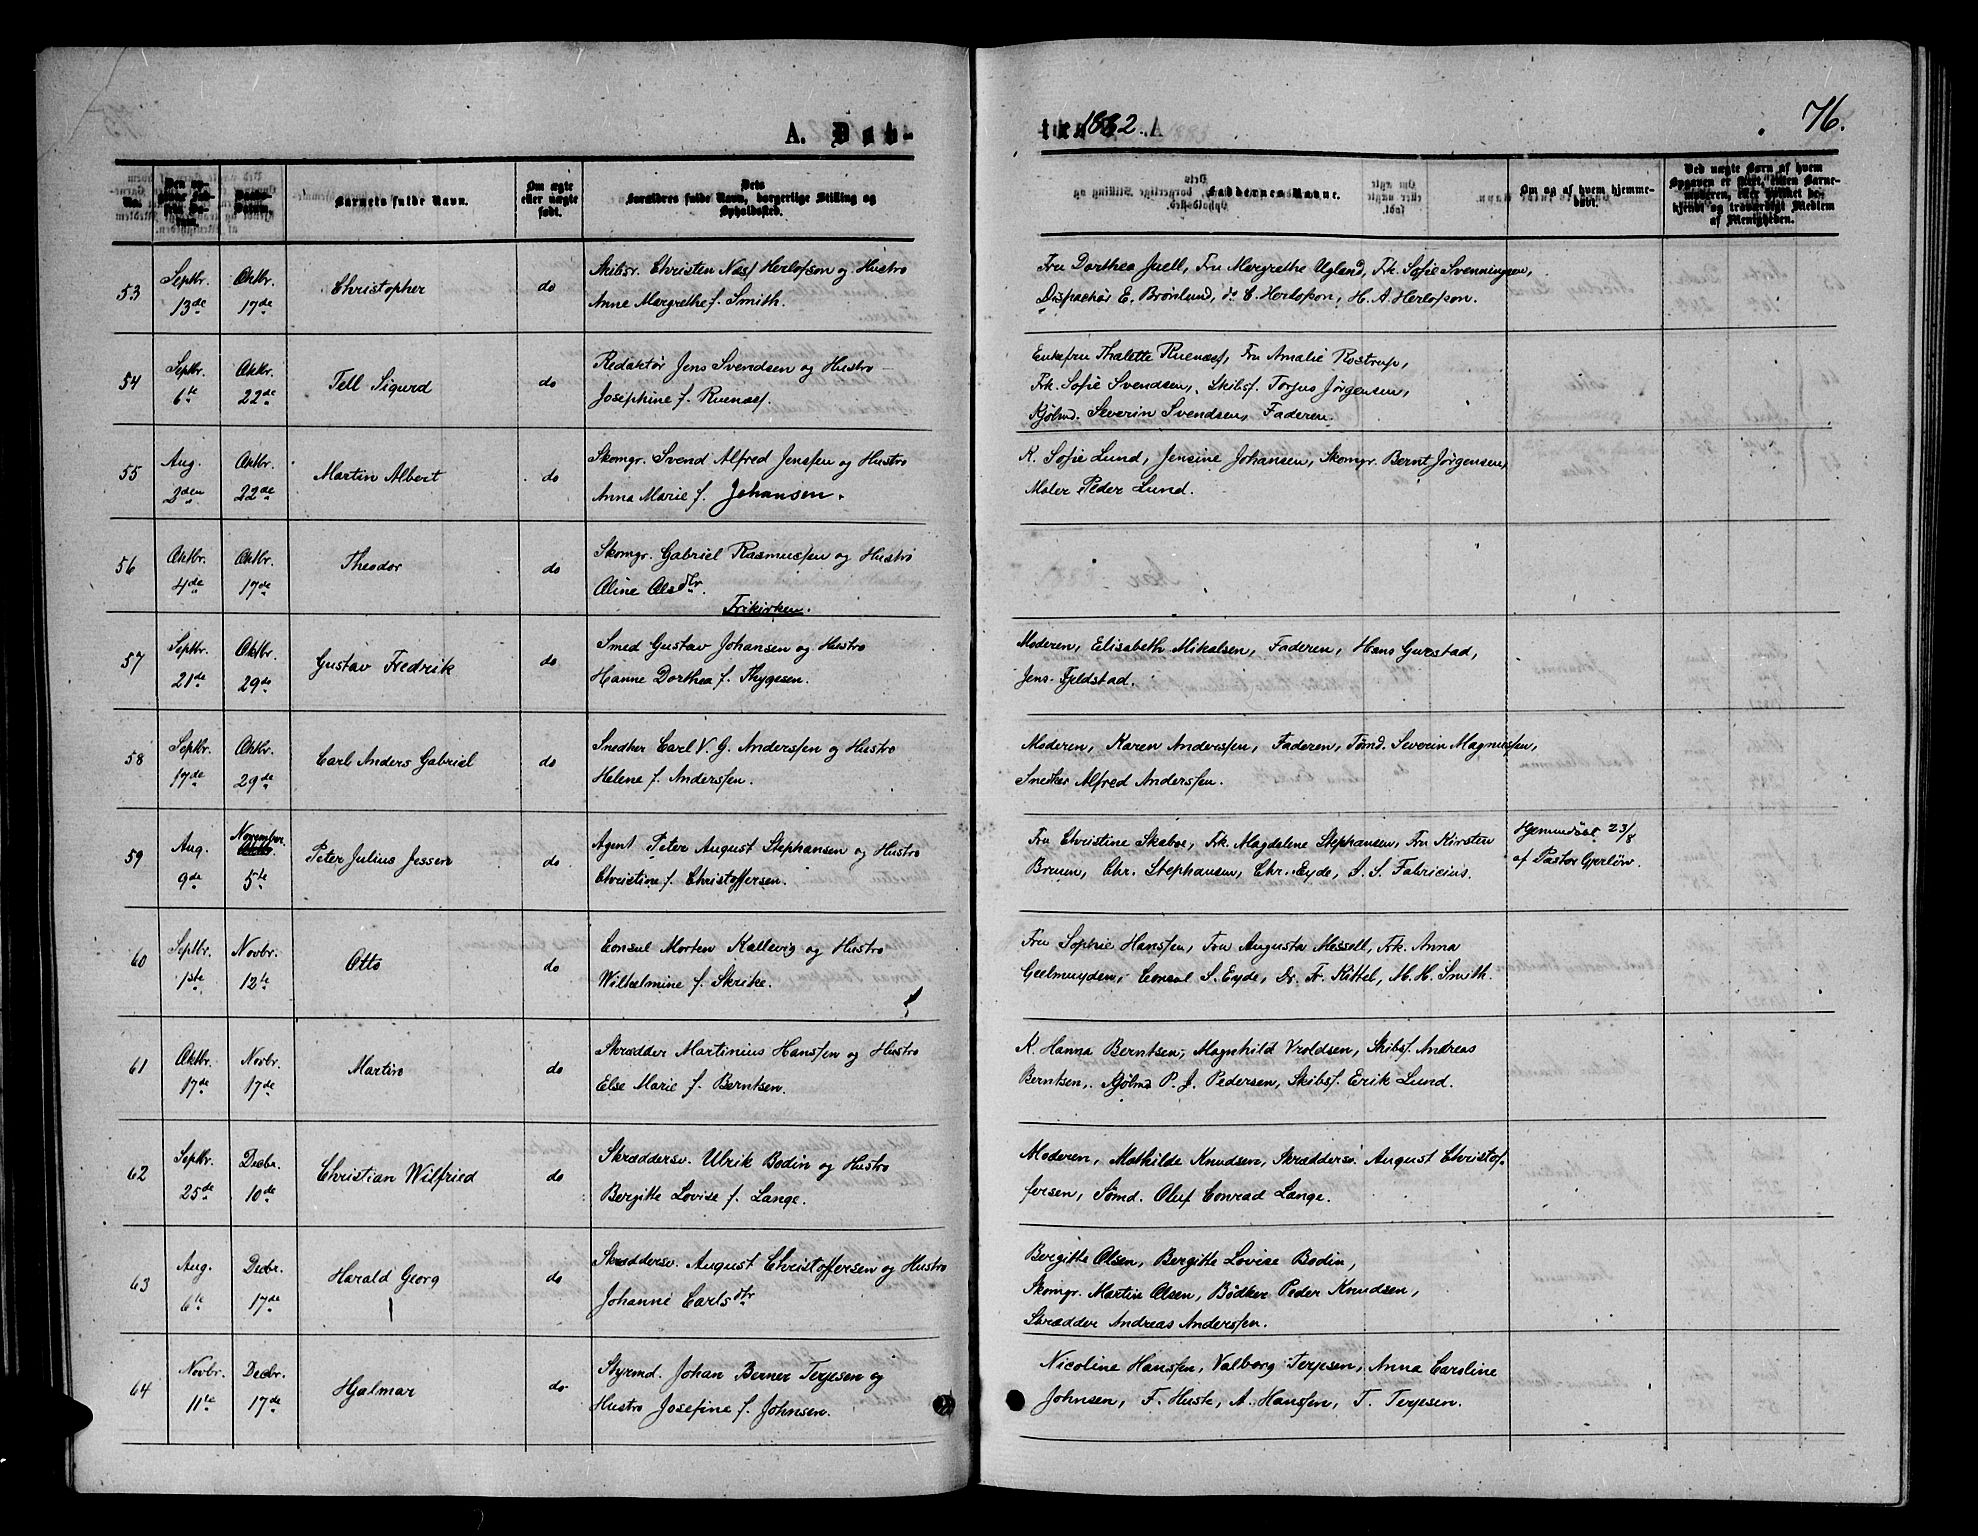 A. Døb-
te. 1882.
76.
No.
Barnets fulde Navn.
Om ægte eller uægte født.
Dets Forældres fulde Navn, borgerlige Stilling og Opholdssted.
Faddernes Navne.
Om og af hvem hjemme-
døbt.
Ved uægte Børn af hvem
Opgaven er skeet, enten Barne-
moderen, eller hvilket be-
kjendt og troværdigt Medlem
af Menigheden.
53 Septbr. 13de Oktbr. 17de Christopher do
Skibsr. Christen Næsf Herlofson og Hustro
Anne Margrethe f. Smith.
Fru Dorthea Juell, Fru Margrethe Ugland, Frk. Sofie Svenningsen,
Dispachør E. Brønlund, do C. Herlofson, H. A. Herlofson.
54 Septbr. 6te Oktbr. 22de Tell Sigurd do
Redaktør Jens Svendsen og Hustro
Josephine f. Ruenæs.
Enkefru Thalette Ruenæs, Fru Amalie Rostrup,
Frk. Sofie Svendsen, Skibsf. Torjus Jørgensen,
Kjøbmd. Severin Svendsen, Faderen.
55 Aug. Oktbr. 22de Martin Albert do
Skomgr. Svend Alfred Jensen og Hustro
Anna Marie f. Johansen.
K. Sofie Lund, Jensine Johansen, Skomgr. Bernt Jørgensen,
Maler Peder Lund.
56 Oktbr. 4de Oktbr. 17de Theodor do
Skomgr. Gabriel Rasmussen og Hustro
Aline Olsdtr.
Frikirken.
57 Septbr. 21de Oktbr. 29de Gustav Fredrik do
Smed Gustav Johansen og Hustro
Hanne Dorthea f. Thygesen.
Moderen, Elisabeth Mikalsen, Faderen, Hans Gurstad,
Jens Fjeldstad.
58 Septbr. 17de Oktbr. 29de Carl Anders Gabriel do
Snedker Carl V. G. Andersen og Hustro
Helene f. Andersen.
Moderen, Karen Andersen, Faderen, Tømd. Severin Magnussen,
Snedker Alfred Andersen.
59 Aug. 9de November 5te Peter Julius Jessen do
Agent Peter August Stephansen og Hustro
Christine f. Christoffersen.
Fru Christine Skaboe, Frk. Magdalene Stephansen, Fru Kirsten
Bruun, Chr. Stephansen, Chr. Eyde, I. S. Fabricius.
Hjemmedøbt 23/8
af Pastor Gjerløw.
60 Septbr. 1ste Novbr. 12te Otto do
Consul Morten Kallevig og Hustro
Wilhelmine f. Skrike.
Fru Sophie Hansen, Fru Augusta Messell, Frk. Anna
Geelmuyden, Consul S. Eyde, Dr. Fr. Kittel, M. H. Smith.
61 Oktbr. 17de Novbr. 17de Martin do
Skrædder Martinius Hansen og Hustro
Else Marie f. Berntsen.
K. Hanna Berntsen, Magnhild Vroldsen, Skibsf. Andreas
Berntsen, Kjøbmd P. J. Pedersen, Skibsf. Erik Lund.
62 Septbr. 25de Decbr. 10de Christian Wilfried do
Skræddersv. Ulrik Bodin og Hustro
Bergitte Lovise f. Lange.
Moderen, Mathilde Knudsen, Skræddersv. August Christof-
fersen, Sømd. Oluf Conrad Lange.
63 Aug. 6te Decbr. 17de Harald Georg do
Skræddersv. August Christoffersen og Hustro
Johanne Carlsdtr
Bergitte Olsen, Bergitte Lovise Bodin,
Skomgr. Martin Olsen, Bødker Peder Knudsen,
Skrædder Andreas Andersen.
64 Novbr. 11te Decbr. 17de Hjalmar do
Styrmd. Johan Berner Terjesen og
Hustro Josefine f. Johnsen.
Nicoline Hansen, Valborg Terjesen, Anna Caroline
Johnsen, F. Huste, A. Hansen, T. Terjesen.